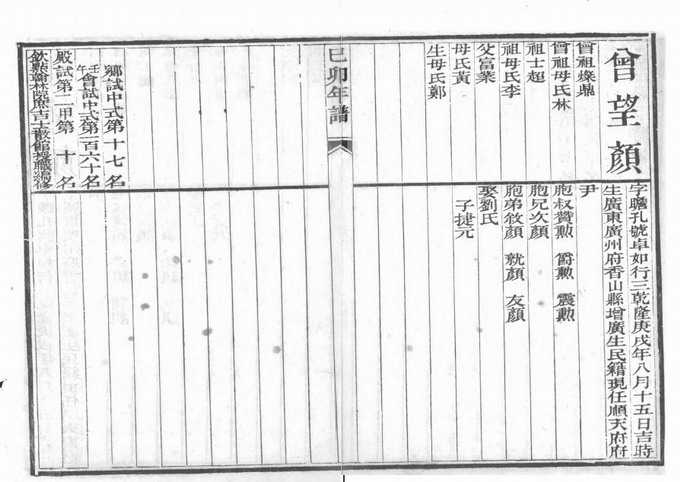 曾望顏
字瞻孔號卓如行三乾隆庚戌年八月十五日吉時
生廣東廣州府香山縣增廣生民籍現任順天府府
尹
曾祖燦鼎
曾祖母氏林
祖士超
祖母氏李
父富業
母氏黃
生母氏鄭
胞叔贊勳 爵勳 震勳
胞兄次顏
胞弟敘顏 就顏 友顏
娶劉氏
子捷元
己卯年譜
鄉試中式第十七名
壬午會試中式第一百六十名
殿試第二甲第 十 名
欽點翰林院庶吉士散館授職編修